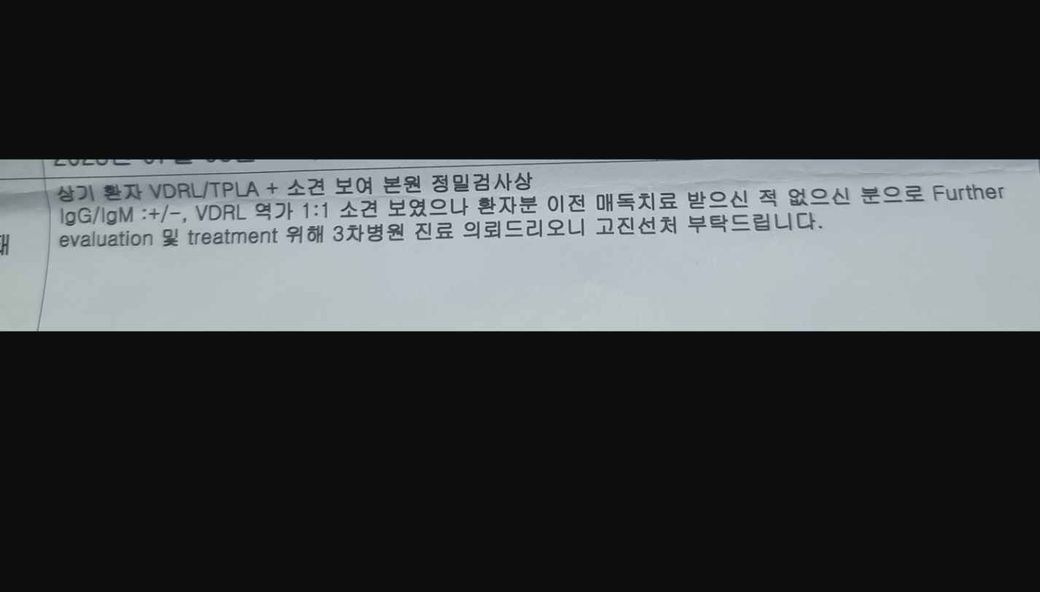 상기 환자 VDRL/TPLA + 소견 보여 본원 정밀검사상
IgG/IgM :+/-, VDRL 역가 1:1 소견 보였으나 환자분 이전 매독치료 받으신 적 없으신 분으로 Further
evaluation 및 treatment 위해 3차병원 진료 의뢰드리오니 고진선처 부탁드립니다.